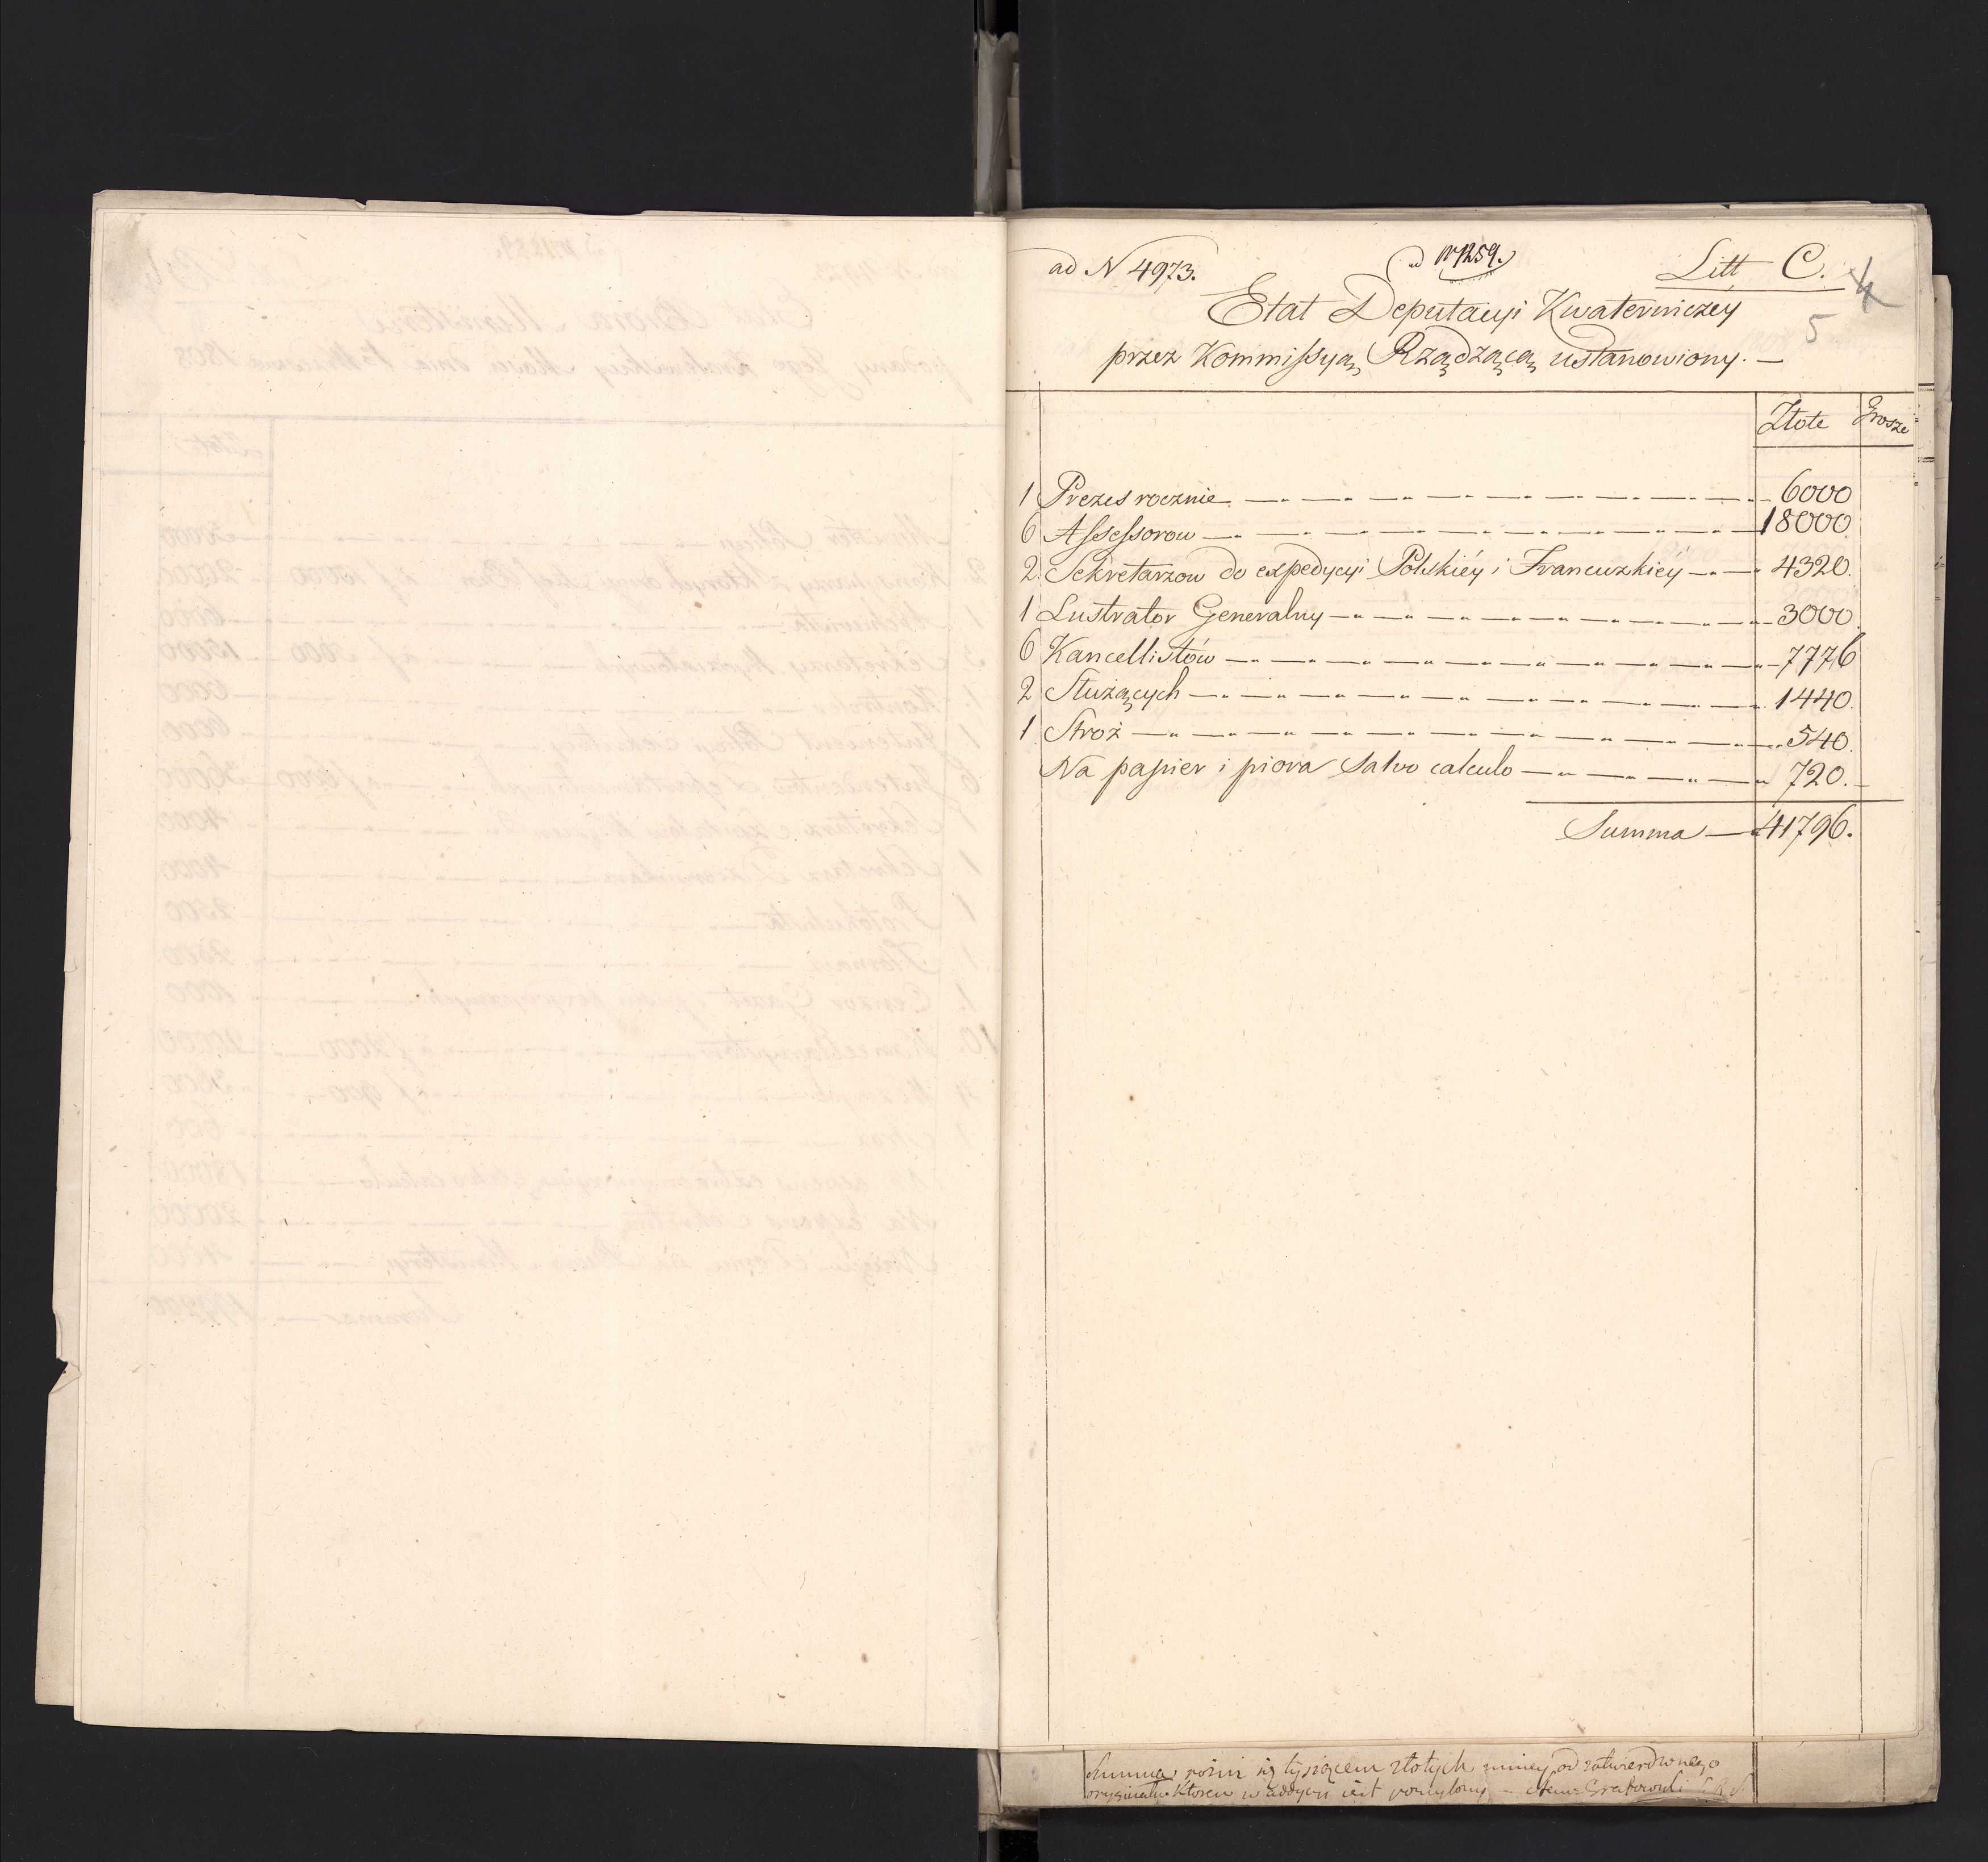 ad N 4973.
ad N 1259.
Litt C.
4
5
Etat Deputacyi Kwaterniczéy
przez Kommissyą Rządzącą ustanowiony. —
Złote Grosze
1 Prezes rocznie — 6000
6 Assessorow — 18000
2 Sekretarzow do expedycyi Polskiéy i Francuzkiéy — 4320.
1 Lustrator Generalny — 3000
6 Kancellistów — 7776
2 Służących — 1440.
1 Stroż — 540.
Na papier i piora Salvo calculo — 720.
Summa — 41796.
Summa rożni się tysiącem złotych mniey od zatwierdzonego
oryginału Ktoren w addycyi iest pomylony —